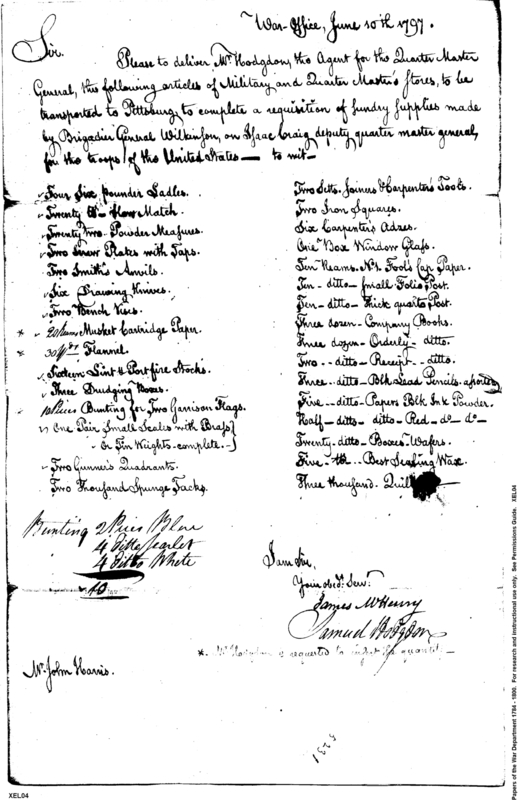 War-Office, June 10th 1797.
Sir.
Please to deliver Mr. Hodgdon, the Agent for the Quarter Master
General, the following articles of Military and Quarter Master's Stores, to be
transported to Pittsburg, to complete a requisition of sundry supplies made
by Brigadier General Wilkinson, on Isaac Craig deputy quarter master general,
for the troops of the United States — to wit —
Four Six pounder Ladles.
Twenty lb - Slow Match.
Twenty two - Powder Measures.
Two Screw Plates with Taps.
Two Smith's Anvils.
Six Drawing Knives.
Two Bench Vises.
* Reams Musket Cartridge Paper.
* 30 Flannel.
Sixteen Lint & Portfire Stocks.
Three Drudging Boxes.
Bunting for Two Garrison Flags.
One Pair Small Scales with Brass
or Tin Weights - complete.
Two Gunner's Quadrants.
Two Thousand Spunge Tacks.
Two Setts. Joiners & Carpenter's Tools.
Two Iron Squares.
Six Carpenter's Adzes.
One Box Window Glass.
Ten Reams. No. 1. Fool's Cap Paper.
Ten - ditto - small Folio Post.
Ten - ditto - thick quarto Post.
Three dozen - Company Books.
Three dozen - Orderly - ditto.
Two - ditto - Receipt - ditto.
Three - ditto - Blk Lead Pencils. assorted
Five - ditto - Papers Blk Ink Powder.
Half - ditto - ditto - Red - do do -
Twenty - ditto - Boxes Wafers.
Five - lb - Best Sealing Wax.
Three thousand. Quills
Bunting 2 Pieces Blue
4 Ditto Scarlet
4 Ditto White
10
I am Sir,
Your obdt. Servt.
James McHenry
Samuel Hodgdon
* Mr Hodgdon is requested to insert the quantity
Mr. John Harris.
5231
XEL04
Papers of the War Department 1784 - 1800. For research and instructional use only. See Permissions Guide. XEL04